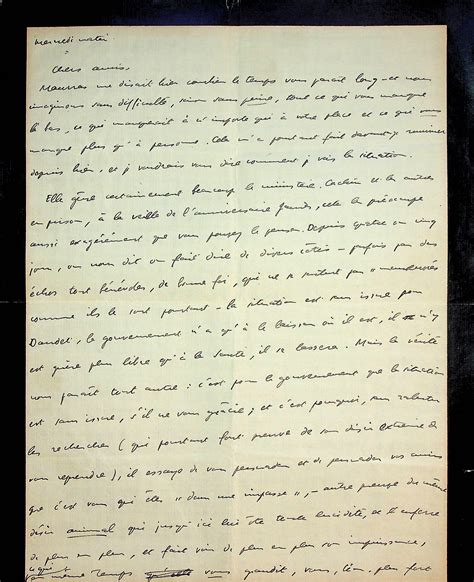 mercredi matin
Chers amis,
Maurras me disait hier combien le temps vous paraît long – et nous
imaginons sans difficulté, sinon sans peine, tout ce qui vous manque
là-bas, ce qui manquerait à n'importe qui à votre place et ce qui vous
manque plus qu'à personne. Cela m'a pourtant fait davantage ruminer
depuis hier, et je voudrais vous dire comment je vois la situation.
Elle gêne certainement beaucoup le ministère. Cachin et les autres
en prison, à la veille de l'anniversaire, cela le préoccupe
aussi exagérément que vous pouvez le penser. Depuis quatre ou cinq
jours, on nous dit ou fait dire de divers côtés – parfois par des
échos tout bénévoles, de bonne foi, qui ne se sentent pas "manœuvrés"
comme ils le sont pourtant – la situation est sans issue pour
Daudet, le gouvernement n'a qu'à le laisser où il est, il n'y
est guère plus libre qu'à la Santé, il se lassera. Mais la vérité
nous paraît tout autre : c'est pour le gouvernement que la situation
est sans issue, s'il ne vous grâcie ; et c'est pourquoi, sans ralentir
les recherches (qui pourtant font preuve de son désir extrême de
vous reprendre), il essaye de vous persuader et de persuader vos amis
que c'est vous qui êtes "dans une impasse", – autre preuve du même
désir animal qui jusqu'ici lui ôte toute lucidité, et l'enferre
de plus en plus, et fait voir de plus en plus son impuissance,
même temps vous grandit, vous, plus fort